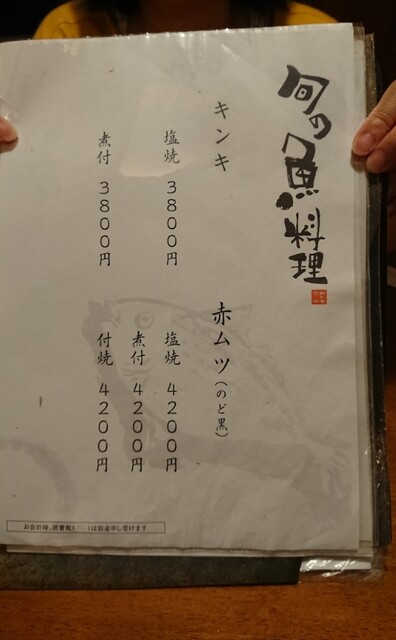 旬の魚料理
キンキ
塩焼 3800円
煮付 3800円
赤ムツ(のど黒)
塩焼 4200円
煮付 4200円
付焼 4200円
お会計時、消費税
は別途申し受けます